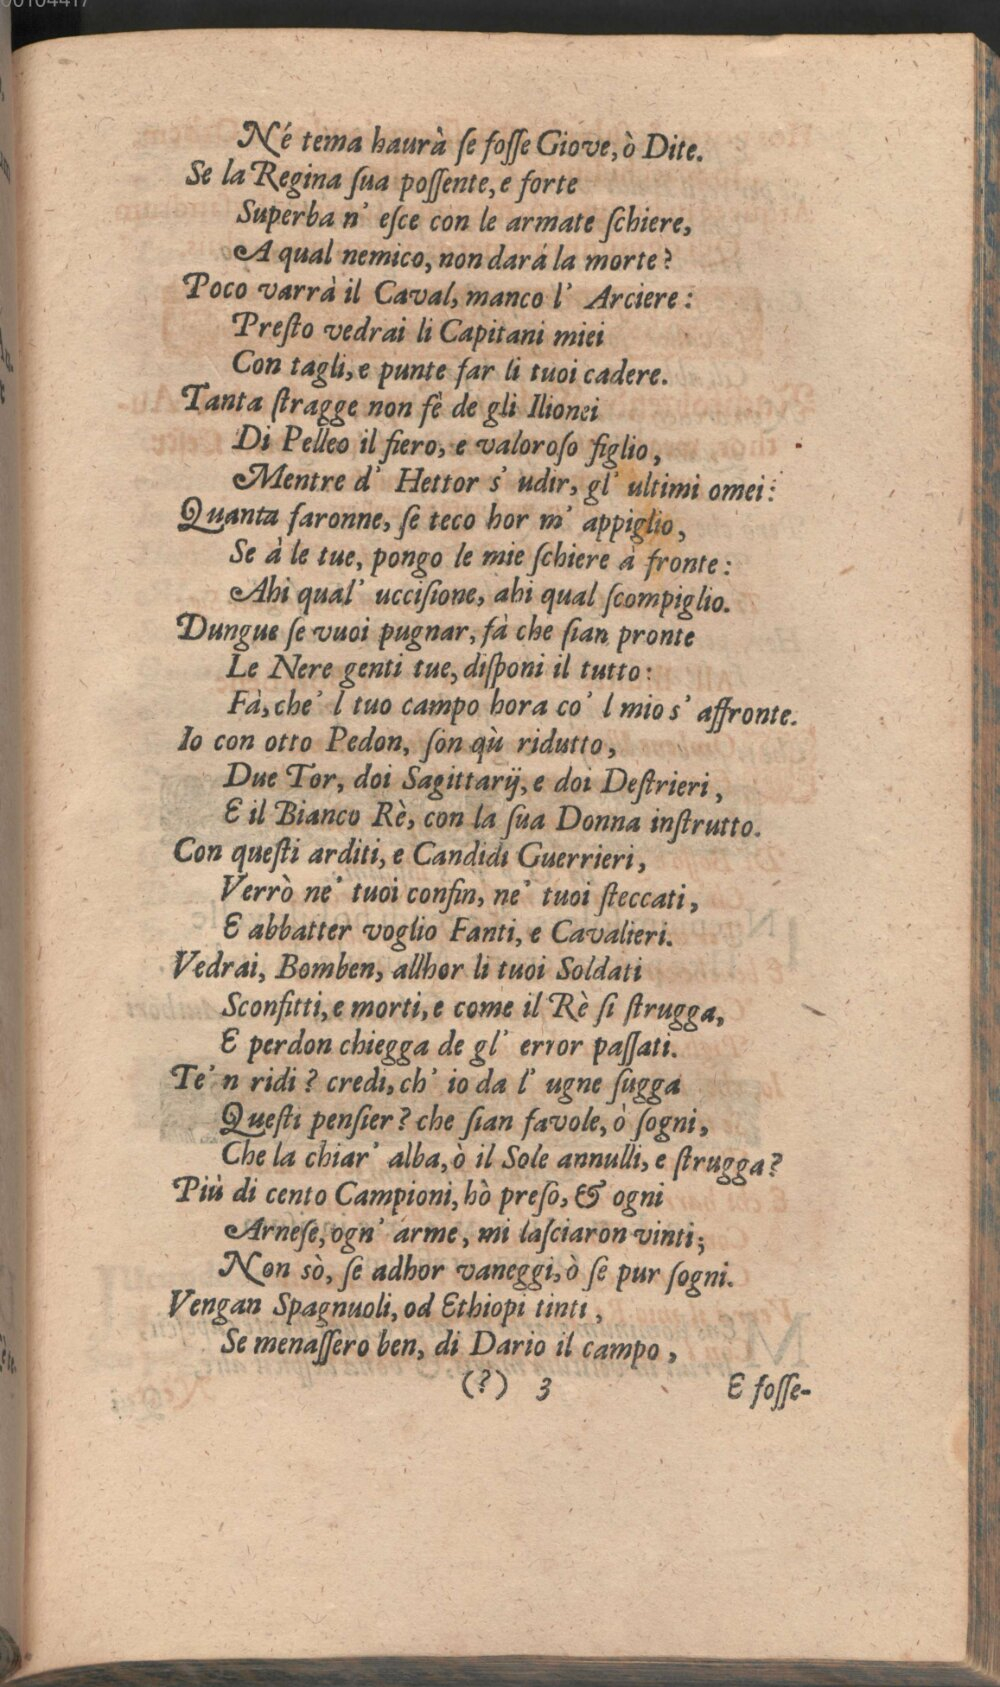 Né tema haurà ſe foſſe Giove, ò Dite.
Se la Regina ſua poſſente, e forte
Superba n' eſce con le armate ſchiere,
A qual nemico, non dará la morte?
Poco varrà il Caval, manco l' Arciere:
Preſto vedrai li Capitani miei
Con tagli, e punte far li tuoi cadere.
Tanta ſtragge non fê de gli Ilionei
Di Pelleo il fiero, e valoroſo figlio,
Mentre d' Hettor s' udir, gl' ultimi omei:
Quanta faronne, ſe teco hor m' appiglio,
Se à le tue, pongo le mie ſchiere à fronte:
Ahi qual' ucciſione, ahi qual ſcompiglio.
Dungue ſe vuoi pugnar, fà che ſian pronte
Le Nere genti tue, diſponi il tutto:
Fà, che' l tuo campo hora co' l mio s' affronte.
Io con otto Pedon, ſon qù ridutto,
Due Tor, doi Sagittarij, e doi Deſtrieri,
E il Bianco Rè, con la ſua Donna inſtrutto.
Con queſti arditi, e Candidi Guerrieri,
Verrò ne' tuoi confin, ne' tuoi ſteccati,
E abbatter voglio Fanti, e Cavalieri.
Vedrai, Bomben, allhor li tuoi Soldati
Sconfitti, e morti, e come il Rè ſi ſtrugga,
E perdon chiegga de gl' error paſſati.
Te' n ridi? credi, ch' io da l' ugne ſugga
Queſti penſier? che ſian favole, ò ſogni,
Che la chiar' alba, ò il Sole annulli, e ſtrugga?
Più di cento Campioni, hò preſo, & ogni
Arneſe, ogn' arme, mi laſciaron vinti;
Non sò, ſe adhor vaneggi, ò ſe pur ſogni.
Vengan Spagnuoli, od Ethiopi tinti,
Se menaſſero ben, di Dario il campo,
(?) 3 E foſſe-